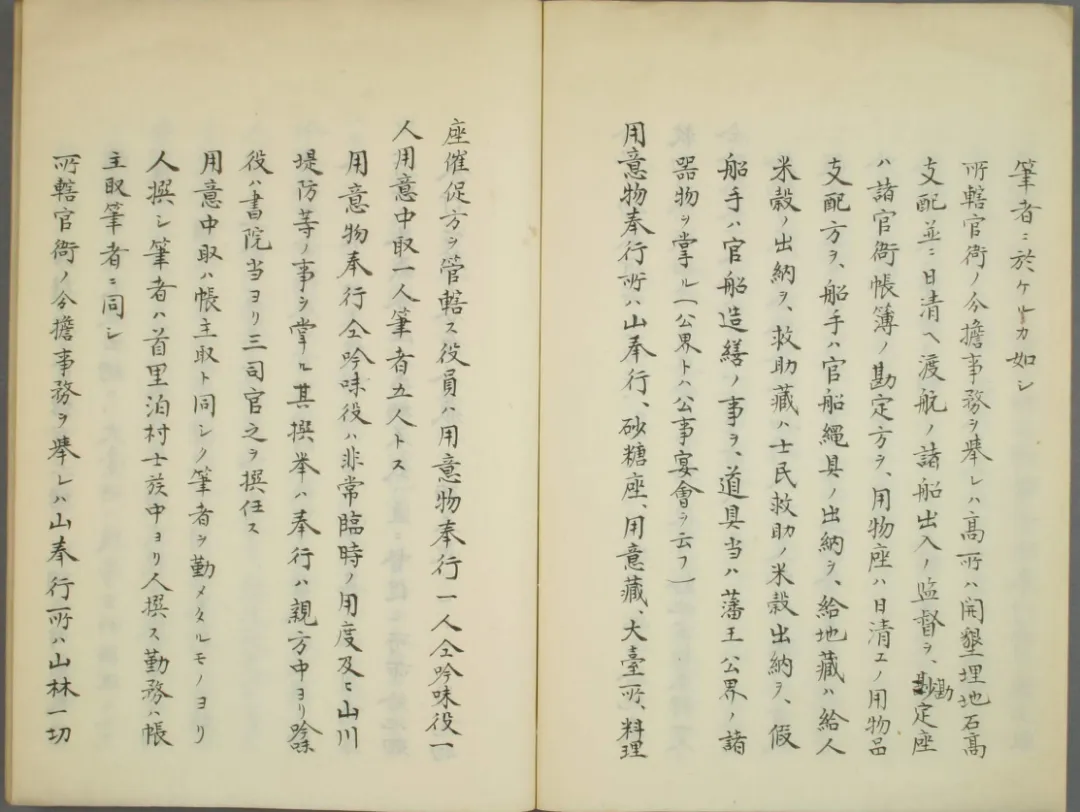 筆者ニ於ケルカ如シ
所轄官衙ノ分擔事務ヲ擧レハ高所ハ開墾埋地石高
支配並ニ日清ヘ渡航ノ諸船出入ノ監督ヲ、勘定座
ハ諸官衙帳簿ノ勘定方ヲ、用物座ハ日清エノ用物品
支配方ヲ、船手ハ官船縄具ノ出納ヲ、給地藏ハ給人
米穀ノ出納ヲ、救助藏ハ士民救助ノ米穀出納ヲ、假
船手ハ官船造繕ノ事ヲ、道具当ハ藩王公界ノ諸
器物ヲ掌ル(公界トハ公事宴會ヲ云フ)
用意物奉行所ハ山奉行、砂糖座、用意藏、大臺所、料理
座催促方ヲ管轄ス役員ハ用意物奉行一人仝吟味役一
人用意中取一人筆者五人トス
用意物奉行仝吟味役ハ非常臨時ノ用度及ニ山川
堤防等ノ事ヲ掌ル其撰挙ハ奉行ハ親方中ヨリ除
役ハ書院当ヨリ三司官之ヲ撰任ス
用意中取ハ帳主取ト同シノ筆者ヲ勤メタルモノヨリ
人撰シ筆者ハ首里泊村士族中ヨリ人撰ス勤務ハ帳
主取筆者ニ同シ
所轄官衙ノ分擔事務ヲ擧レハ山奉行所ハ山林一切